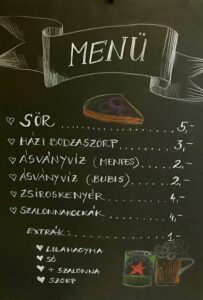 MENÜ
♥ SÖR ........ 5,-
♥ HÁZI BODZASZÖRP ........ 3,-
♥ ÁSVÁNYVÍZ (MENTES) ..... 2,-
♥ ÁSVÁNYVÍZ (BUBIS) ..... 2,-
♥ ZSÍROSKENYÉR ........ 4,-
♥ SZALONNAKOCKÁK ........ 4,-
EXTRÁK: ........ 1,-
♥ LILAHAGYMA
♥ SÓ
♥ + SZALONNA
♥ SZÖRP